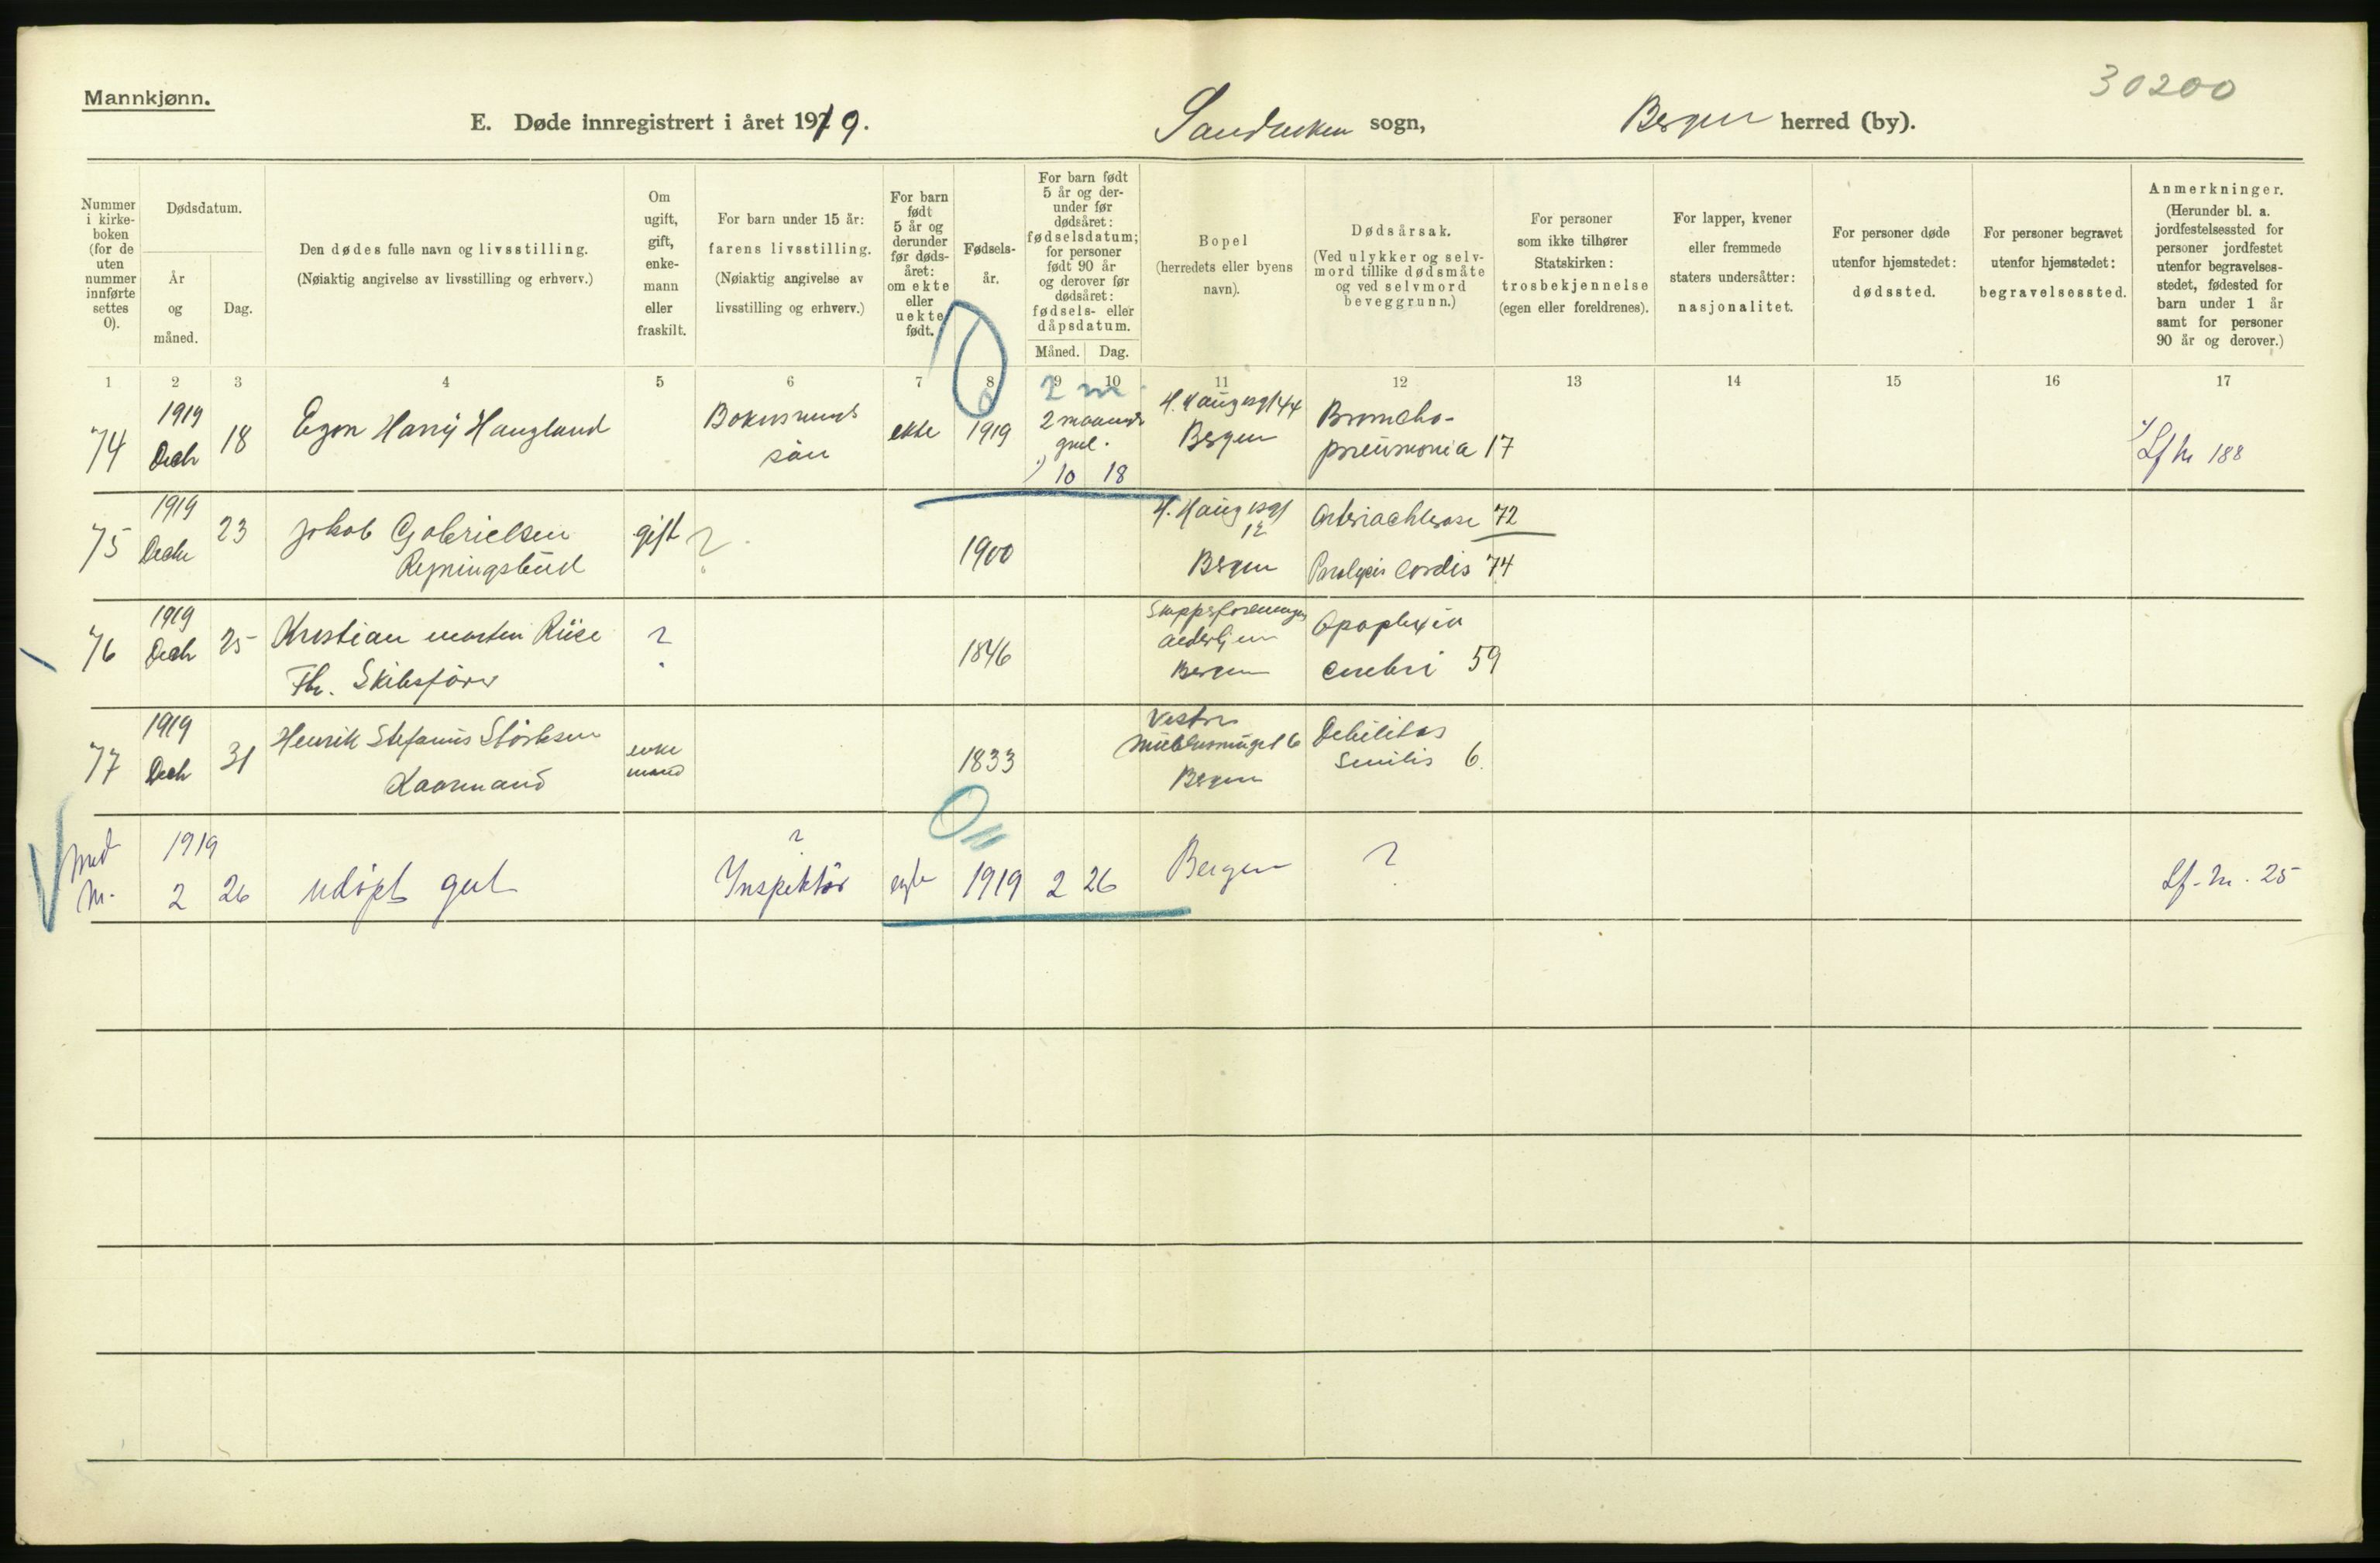 Mannkjønn.
30200
E. Døde innregistrert i året 1919.
Sandviken sogn,
Bergen herred (by).
Nummer i kirkeboken (for de uten nummer innførte settes 0).
Dødsdatum.
År og måned.
Dag.
Den dødes fulle navn og livsstilling.
(Nøiaktig angivelse av livsstilling og erhverv.)
Om ugift, gift, enkemann eller fraskilt.
For barn under 15 år:
farens livsstilling.
(Nøiaktig angivelse av livsstilling og erhverv.)
For barn født 5 år og derunder før dødsåret: om ekte eller uekte født.
Fødselsår.
For barn født 5 år og derunder før dødsåret: fødselsdatum; for personer født 90 år og derover før dødsåret: fødsels- eller dåpsdatum.
Måned.
Dag.
Bopel
(herredets eller byens navn).
Dødsårsak.
(Ved ulykker og selvmord tillike dødsmåte og ved selvmord beveggrunn.)
For personer som ikke tilhører Statskirken:
trosbekjennelse
(egen eller foreldrenes).
For lapper, kvener eller fremmede staters undersåtter:
nasjonalitet.
For personer døde utenfor hjemstedet:
dødssted.
For personer begravet utenfor hjemstedet:
begravelsessted.
Anmerkninger.
(Herunder bl. a. jordfestelsessted for personer jordfestet utenfor begravelsesstedet, fødested for barn under 1 år samt for personer 90 år og derover.)
1 2 3 4 5 6 7 8 9 10 11 12 13 14 15 16 17
2 m
74 1919 Decb 18 Egon Harry Haugland
ekte 1919 2 maaneder gml. 10 18
Bergen
Broncho-
pneumonia 17
Lf nr 188
75 1919 Decbr 23 Jakob Gabrielsen
Regningsbud
gift ?
1900
H. Haugesgt 12
Bergen
Arteriosclerose 72
Paralysis Cordis 74
76 1919 Decb 25 Kristian Morten Riise
Fhv. Skibsfører
?
1846
Bergen
Apoplexia
cerebri 59
77 1919 Decb 31 Henrik Stefanus Størksen
enke
mand
1833
Bergen
Debilitas
senilis 6.
med
nr. 1919 2 26 udøpt gut
?
Inspektør
egte 1919 2 26
Bergen
?
Lf. nr. 25